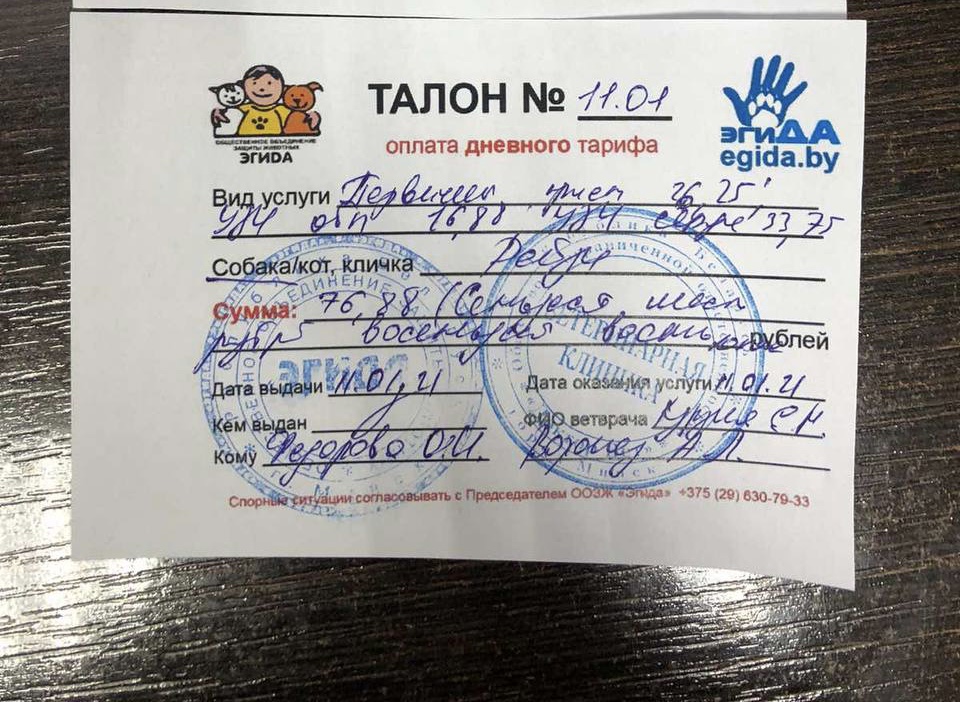 ОБЩЕСТВЕННОЕ ОБЪЕДИНЕНИЕ
ЗАЩИТЫ ЖИВОТНЫХ
ЭГИДА
ТАЛОН № 11.01
оплата дневного тарифа
ЭГИДА
egida.by
Вид услуги Первичный 26,25
УЗИ обп 16,88 УЗИ сердце 33,75
Собака/кот, кличка
Сумма: 76,88 (Семьдесят шесть
восемьдесят восемь рублей
Дата выдачи 11.01.21
Дата оказания услуги 11.01.21
Кем выдан
ФИО ветврача
Кому Федорова О.И.
Спорные ситуации согласовывать с Председателем ООЗЖ «Эгида» +375 (29) 630-79-33
ЭГИДА
ВЕТЕРИНАРНАЯ
КЛИНИКА
Минск